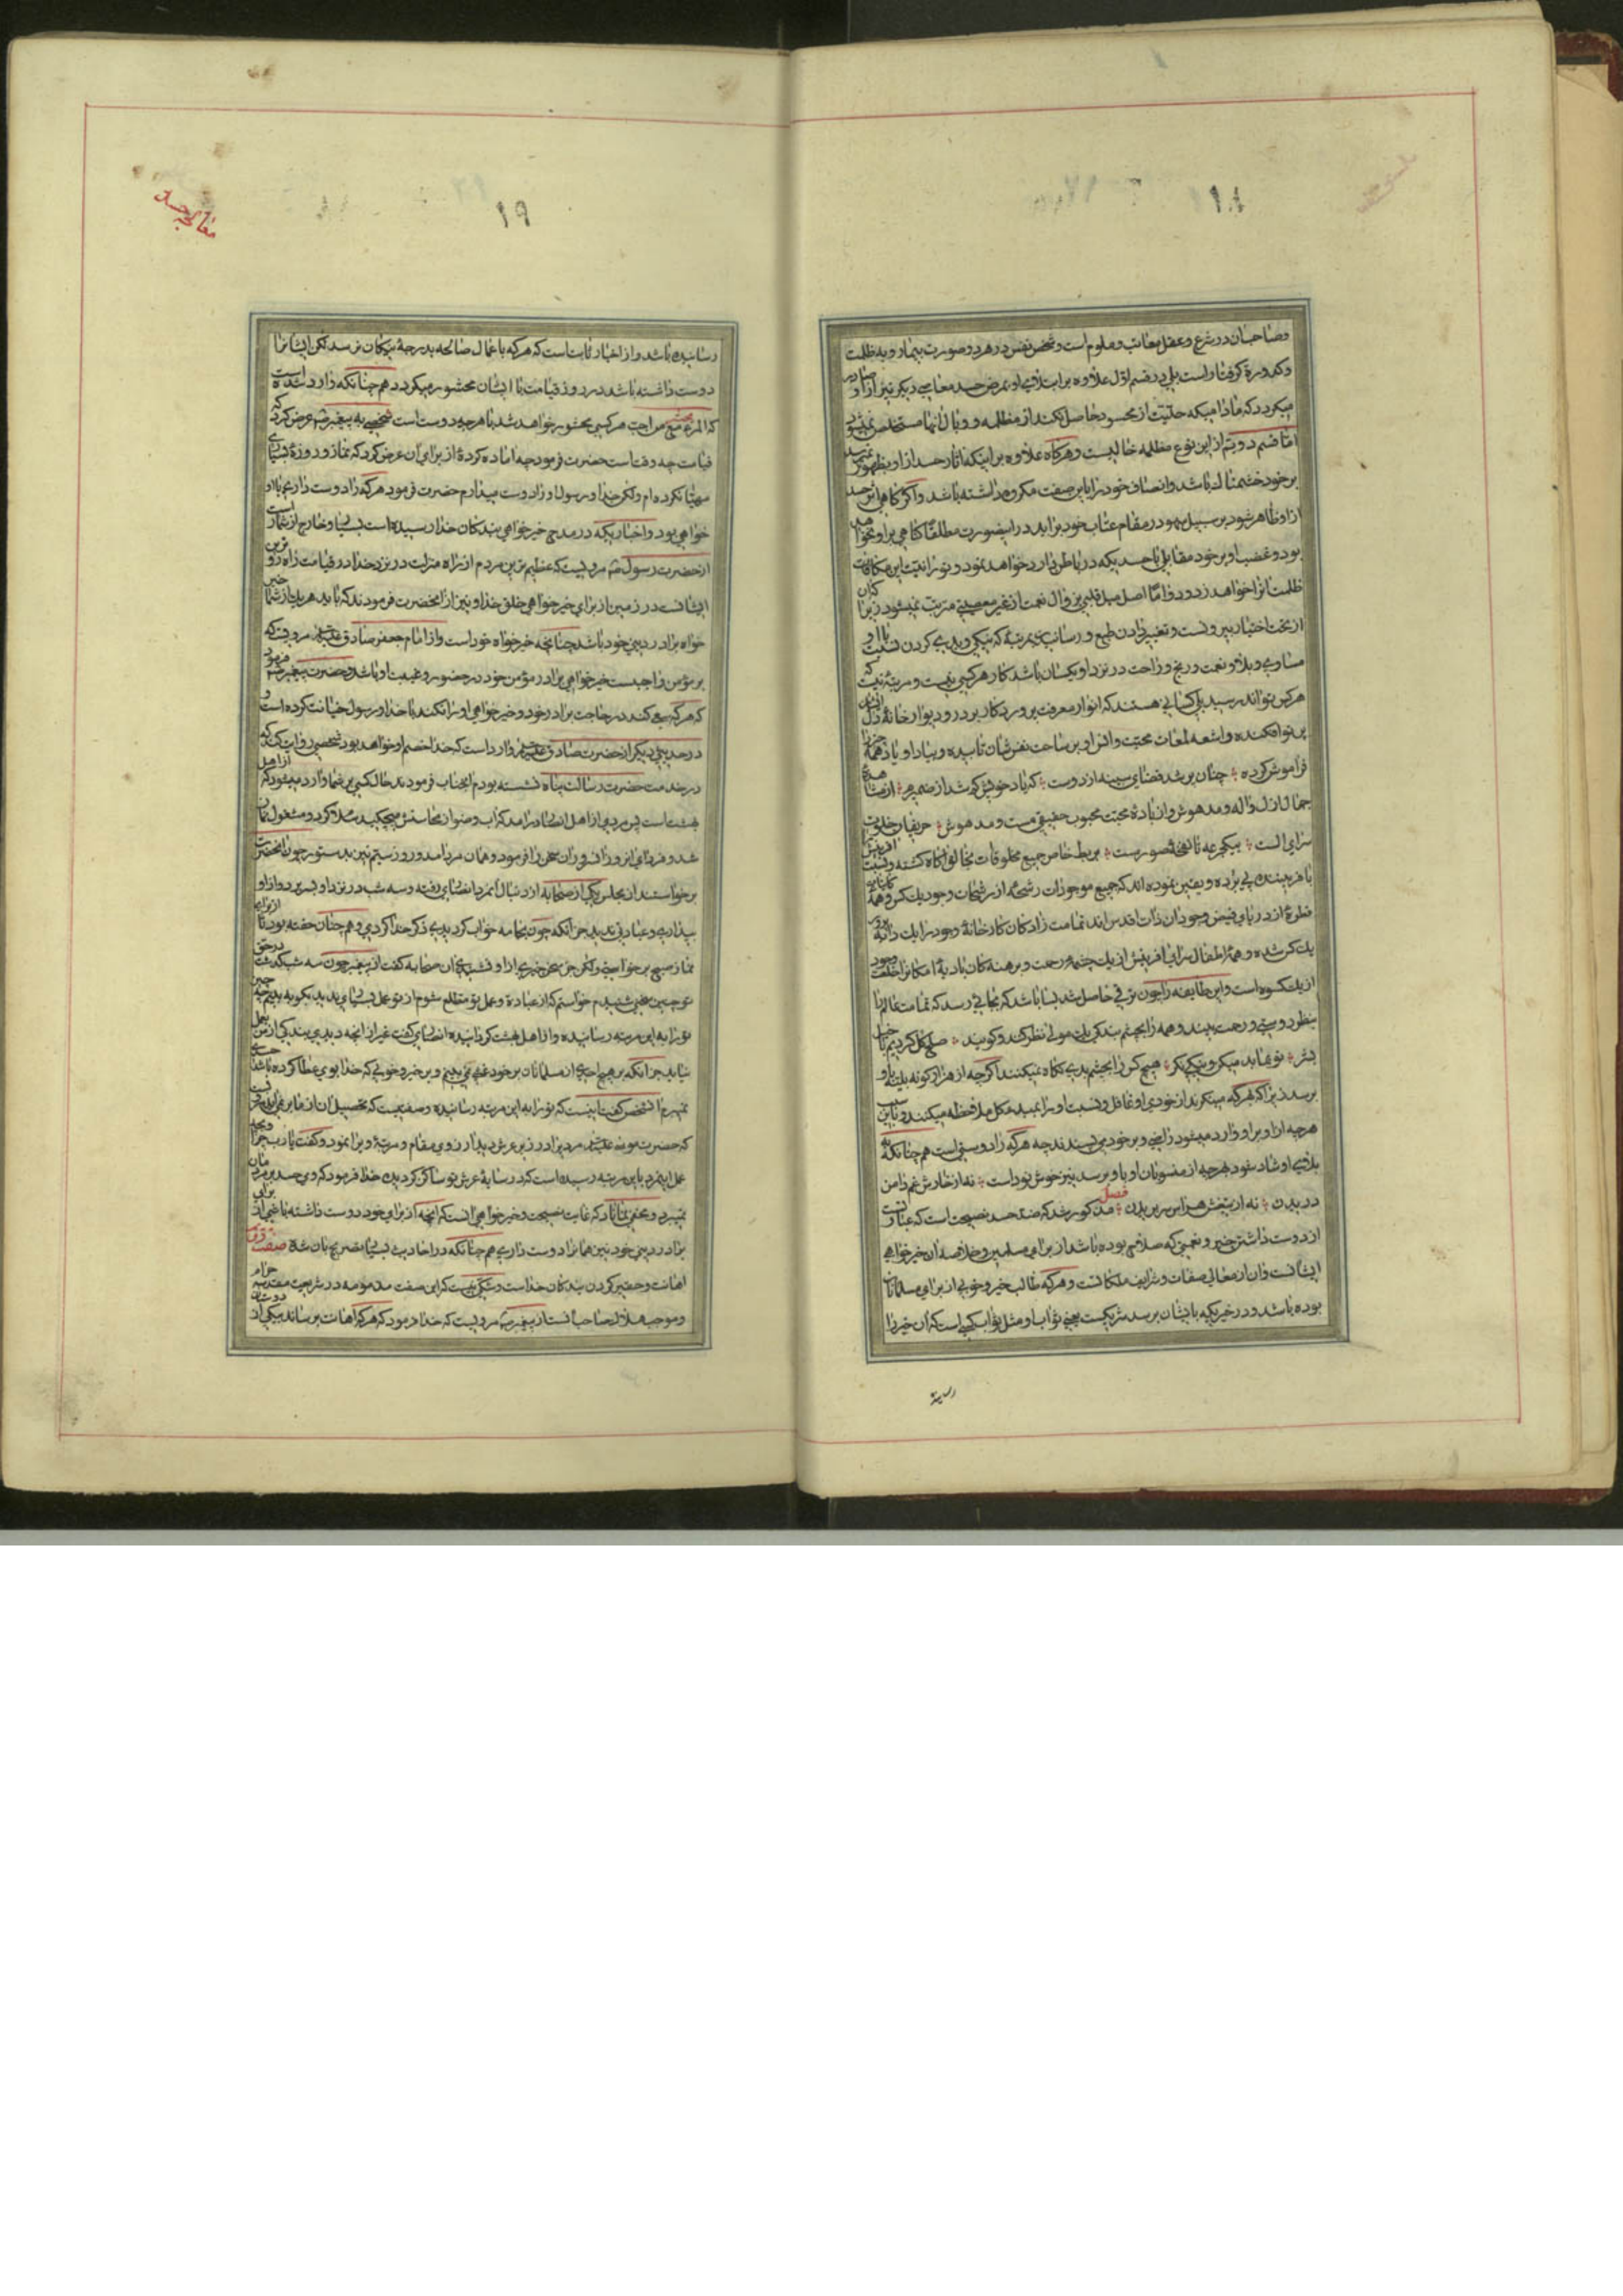 ۱۸
وصاحبان در شرع و عقل معاتب و ملوم است و شخص نفس در هر دو صورت بیمار و به ظلمت
و کدورة گرفتار است بلی در قسم اول علاوه بر ابتلای او بمرض حسد معاصی دیگر نیز از او صادر
میگردد که مادامیکه حلیّت از محسود حاصل نکند از مظلمه و وبال آنها مستخلص نمیشود
امّا قسم دویّم از این نوع مظلمه خالیست و هرگاه علاوه بر اینکه آثار حسد از او بظهور نمیرسد
بر خود خشمناك باشد و از صفات خود را باین صفت مکروه داشته باشد و اگر گاهی اثر حسد
از او ظاهر شود بر سبیل سهو در مقام عتاب خود برآید در اینصورت مطلقا گناهی بر او نخواهد
بود و غضب او بر خود مقابل با حسدیکه در باطن دارد خواهد نمود و نورانیت این مکافات
ظلمت آنرا خواهد زدود و امّا اصل میل قلبی بزوال نعمت از غیر معصیتی مترتب نمیشود زیرا که آن
از تحت اختیار بیرونست و تغییر دادن طبع و رسانیدن بمرتبهٔ که نیکی و بدی کردن نسبت با او
مساوی و بلا و نعمت و رنج و راحت در نزد او یکسان باشد کار هر کسی نیست و مرتبهٔ نیست که
هر کس تواند رسید بلی کسانی هستند که انوار معرفت پروردگار بر در و دیوار خانهٔ دل ایشان
پرتو افکنده و اشعه لمعات محبت و انس او بر ساحت نفسشان تابیده و بیاد او یاد همه چیز را
فراموش کرده چنان پر شد فضای سینه از دوست که یاد خویش گم شد از ضمیرم از مشاهدهٔ
جمال ازل واله و مدهوش و از بادهٔ محبت محبوب حقیقی مست و مدهوش حریفان خلوت
سرای الست بیکجرعه تا نفخهٔ صور مست بربط خاص جمیع مخلوقات بخالق آگاه گشته و نسبت آفرینش
با فریننده پی برده و یقین نموده اند که جمیع موجودات رشحهٔ از رشحات وجود یك کس و همهٔ کاینات
قطرهٔ از دریای فیض وجود آن ذات اقدس اند تمامت زادگان کارخانهٔ وجود را یك دایه پرور
یك کس شده و همه اطفال سرای آفرینش از یك چشمهٔ رحمت و برهنه کان بادیهٔ امکانرا خلعت وجود
از یك کسوه است و این طایفه را چون ترقی حاصل شد بسا باشد که بجائی رسد که تمامت عالم را
بنظر دوستی و رحمت بینند و همه را بچشم بندگی یك مولی نظر کنند و گویند صلح کل کردیم با خیل
بشر تو بما بد میکن و نیکی نگر هیچ کس را بچشم بدی نگاه نمیکنند اگرچه از هزار گونه بلیّه باو
برسد زیرا که بهر که مینگرند از خودی او غافل و نسبت او را بمبدء کل ملاحظه میکنند و باین سبب
هرچه از او بر او وارد میشود راضی و بر خود می پسندند چه هر که را دوستی است هم چنانکه به
بلای او شاد شود بهرچه از منسوبان او باو برسد نیز خوش نود است نه از خارش غم دامن
دریدن نه از تیغش هراس سر بریدن فصل مذکور شد که ضدّ حسد نصیحت است که عبارتست
از دوست داشتن خیر و نعمتی که صلاحی بوده باشد از برای مسلمین و خلاصه آن خیرخواهی
ایشانست و آن از معالی صفات و شرایف ملکاتست و هر که طالب خیر و خوبی از برای مسلمانان
بوده باشد و در خیریکه بایشان برسد شریکست یعنی ثواب او مثل ثواب کسی است که آن خیر را
رسانیده
۱۹
معالجه حسد
رسانیده باشد و از اخبار ثابت است که هر که با عمال صالحه بدرجهٔ نیکان نرسد لکن ایشان را
دوست داشته باشد در روز قیامت با ایشان محشور میگردد هم چنانکه وارد شده است
که المرء یحشر مع من احب هر کسی محشور خواهد شد با هر چه دوست است شخصی به پیغمبر ص عرض کرد که
قیامت چه وقت است حضرت فرمود چه آماده کردهٔ از برای آن عرض کرد که نماز و روزهٔ بسیاری
مهیا نکرده ام ولکن خدا و رسول او را دوست میدارم حضرت فرمود هر که را دوست داری با او
خواهی بود و اخباریکه در مدح خیرخواهی بندگان خدا رسیده است بسیار و خارج از شمار است
از حضرت رسول ص مرویست که عظیم ترین مردم از راه منزلت در نزد خدا در قیامت راه رو ترین
ایشانست در زمین از برای خیر خواهی خلق خدا و نیز از آنحضرت فرمودند که باید هر یك از شما خیر
خواه برادر دینی خود باشد چنانچه خیر خواه خود است و از امام جعفر صادق علیه السلام مرویست که
بر مؤمن واجبست خیر خواهی برادر مؤمن خود در حضور و غیبت او باشد و حضرت پیغمبر ص فرمود
که هر که سعی کند در حاجت برادر خود و خیر خواهی او را نکند با خدا و رسول خیانت کرده است و
در حدیثی دیگر از حضرت صادق علیه السلام وارد است که خدا خصم او خواهد بود شخصی روایت کند که
در خدمت حضرت رسالت پناه نشسته بودم آنجناب فرمودند حال کسی بر شما وارد میشود که از اهل
بهشت است پس مردی از اهل انصار در آمد که آب وضو از محاسنش میچکید سلام کرد و مشغول نماز
شد و فردای آنروز آنسرور آن سخن را فرمود و همان مرد آمد و روز سیّم نیز بدستور چون آنحضرت
برخواستند از مجلس یکی از صحابه از دنبال آنمرد انصاری رفته و سه شب در نزد او بسر برد و از او
بیداری و عبادتی ندید جز آنکه چون بجامه خواب گردیدی ذکر خدا کردی و هم چنان خفته بود تا از برای
نماز صبح برخواستی ولکن جز سخن خیری از او نشنیدی آن صحابه گفت از پیغمبر چون سه شب گذشت در حق
تو چنین سخنی شنیدم خواستم که از عبادة و عمل تو مطلع شوم از تو عمل بسیاری ندیدم بگو به بینم چه چیز
تو را به این مرتبه رسانیده و از اهل بهشت گردانیده انصاری گفت غیر از آنچه دیدی بندگی از من بعمل
نیاید جز آنکه بر هیچ احدی از مسلمانان بر خود غشی نمی بینم و بر خیر و خوبی که خدا بوی عطا کرده باشد حسدی
نمیبرم آنشخص گفت اینست که تو را به این مرتبه رسانیده و صفتیست که تحصیل آن از ما بر نمی آید و مرویست
که حضرت موسی علیه السلام مردیرا در زیر عرش دید آرزوی مقام و مرتبهٔ ویرا نمود و گفت یا رب بچه
عمل اینمرد باین مرتبه رسیده است که در سایهٔ عرش تو ساکن گردیده خدا فرمود که وی حسد بر مردمان
نمیبرد و مخفی نماناد که غایت نصیحت و خیرخواهی آنست که آنچه از برای خود دوست داشته باشی از برای
برادر دینی خود نیز همانرا دوست داری هم چنانکه در احادیث بسیار تصریح بآن شده صفت
اهانت و حقیر کردن بندگان خداست و شکی نیست که این صفت مذمومه در شریعت مقدسه حرام
و موجب هلاك صاحبانست از پیغمبر ص مرویست که خدا فرمود که هر که اهانت برساند بیکی از دوستان